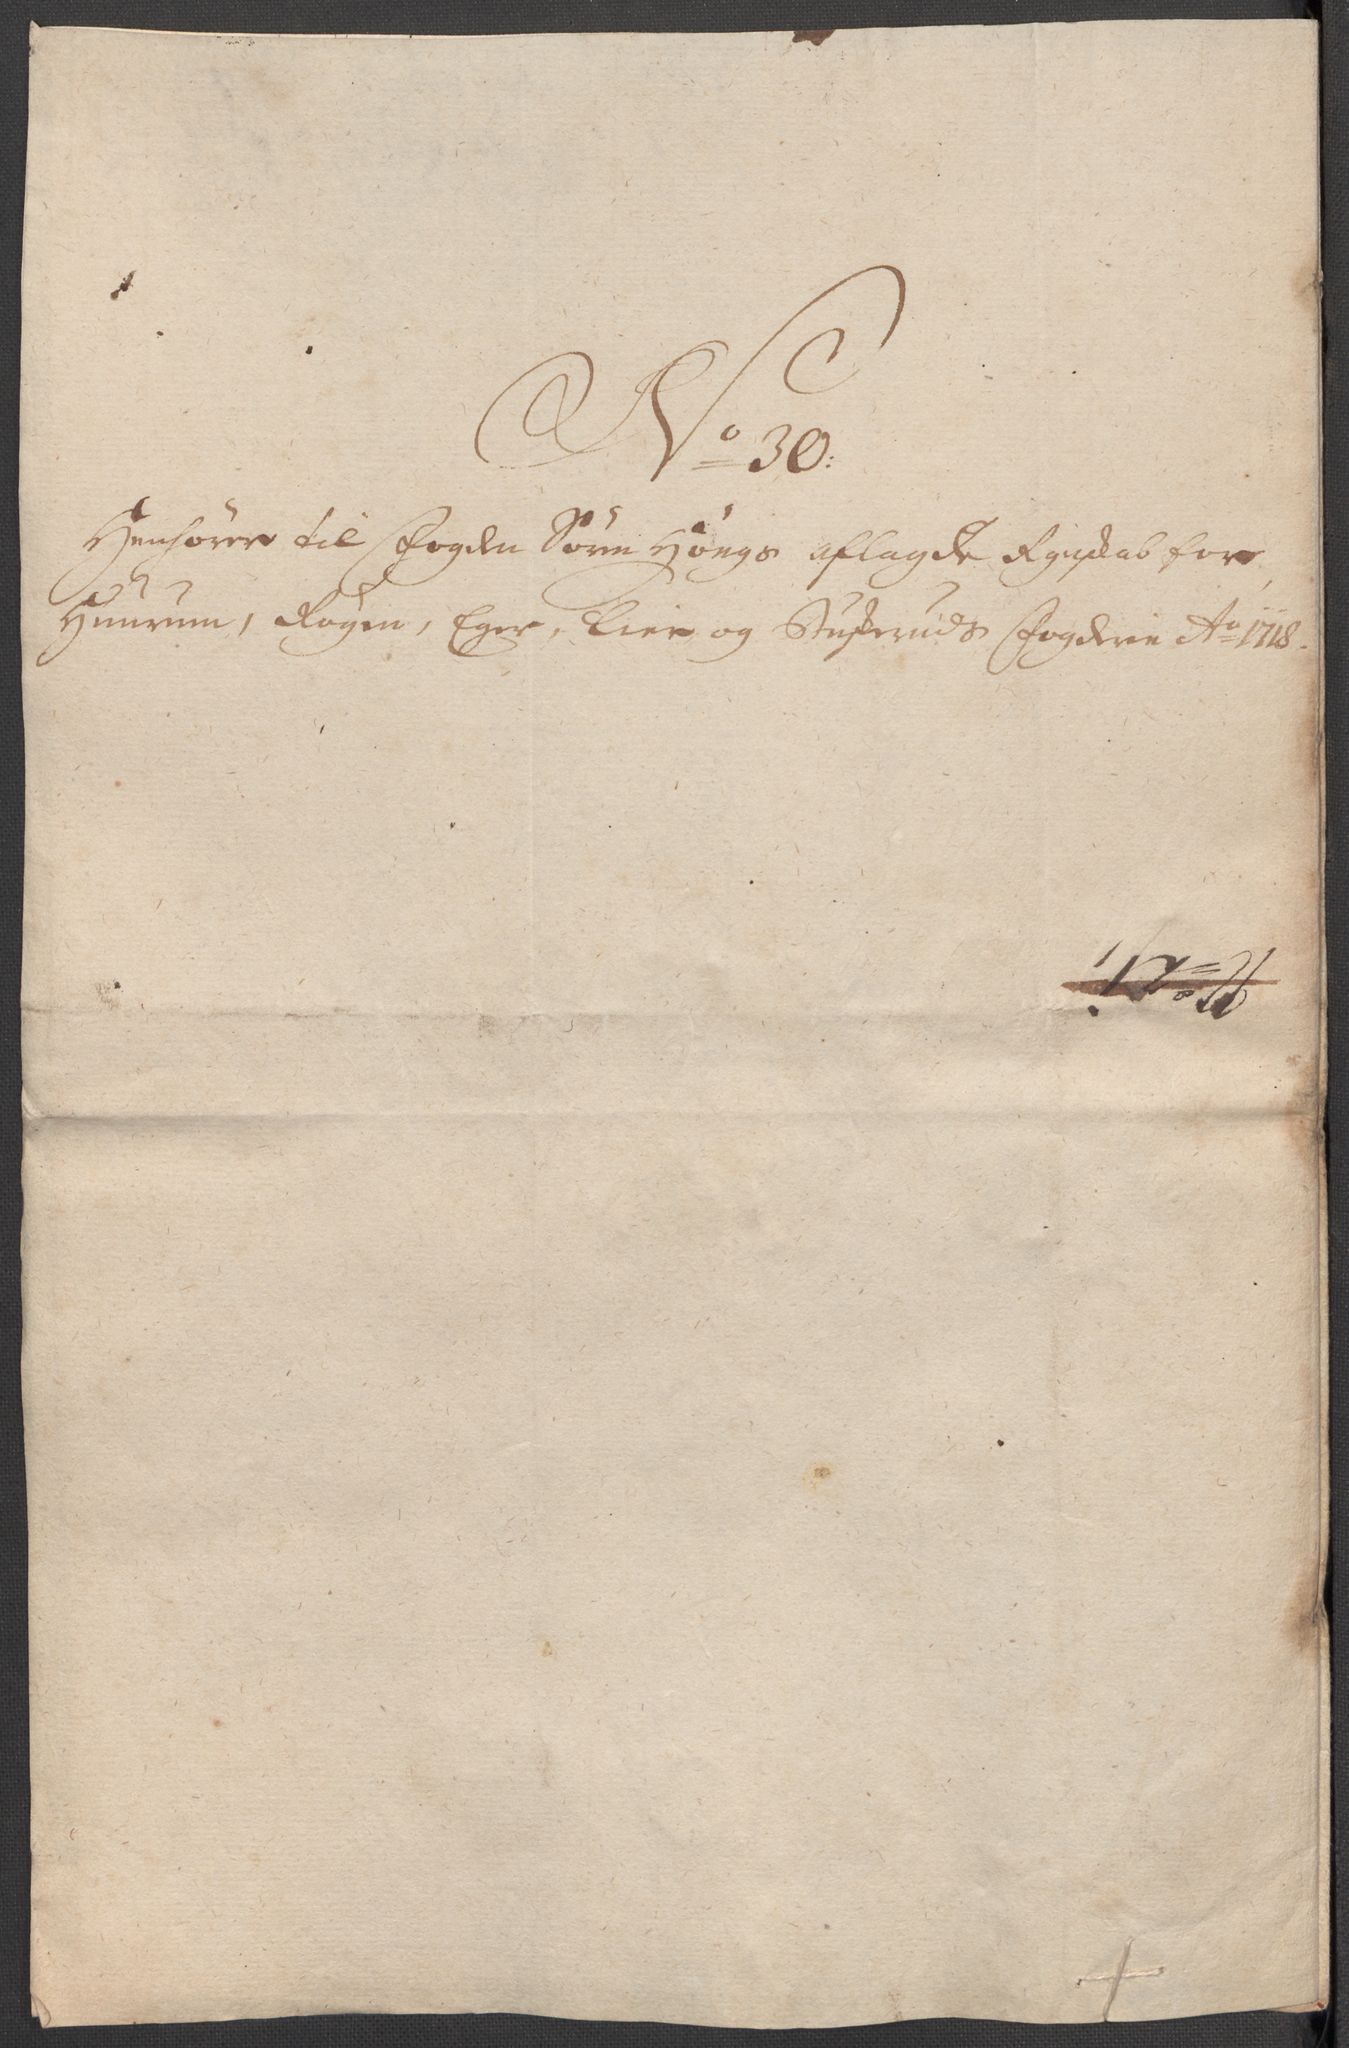 No 30:
Henhörer til Fogden Sörn Höegs aflagde Rgnskab for
Hurum, Röÿgen, Eger, Lier og Buskeruds Fogderie Ao 1718.